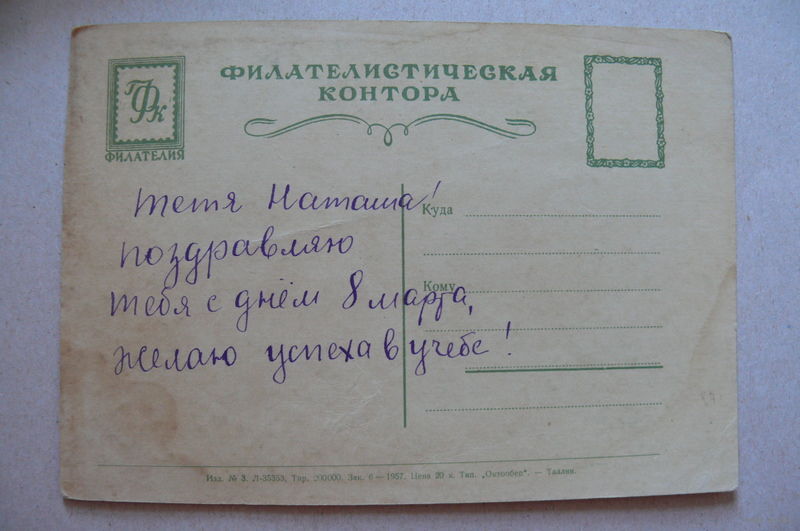 ФК
ФИЛАТЕЛИЯ
ФИЛАТЕЛИСТИЧЕСКАЯ
КОНТОРА
Тетя Наташа!
поздравляю
тебя с днём 8 марта,
желаю успеха в учебе!
Куда
Кому
Изд. № 3. Л-35353, Тир. 200000. Зак. 6 — 1957. Цена 20 к. Тип. „Октообер“. — Таллин.